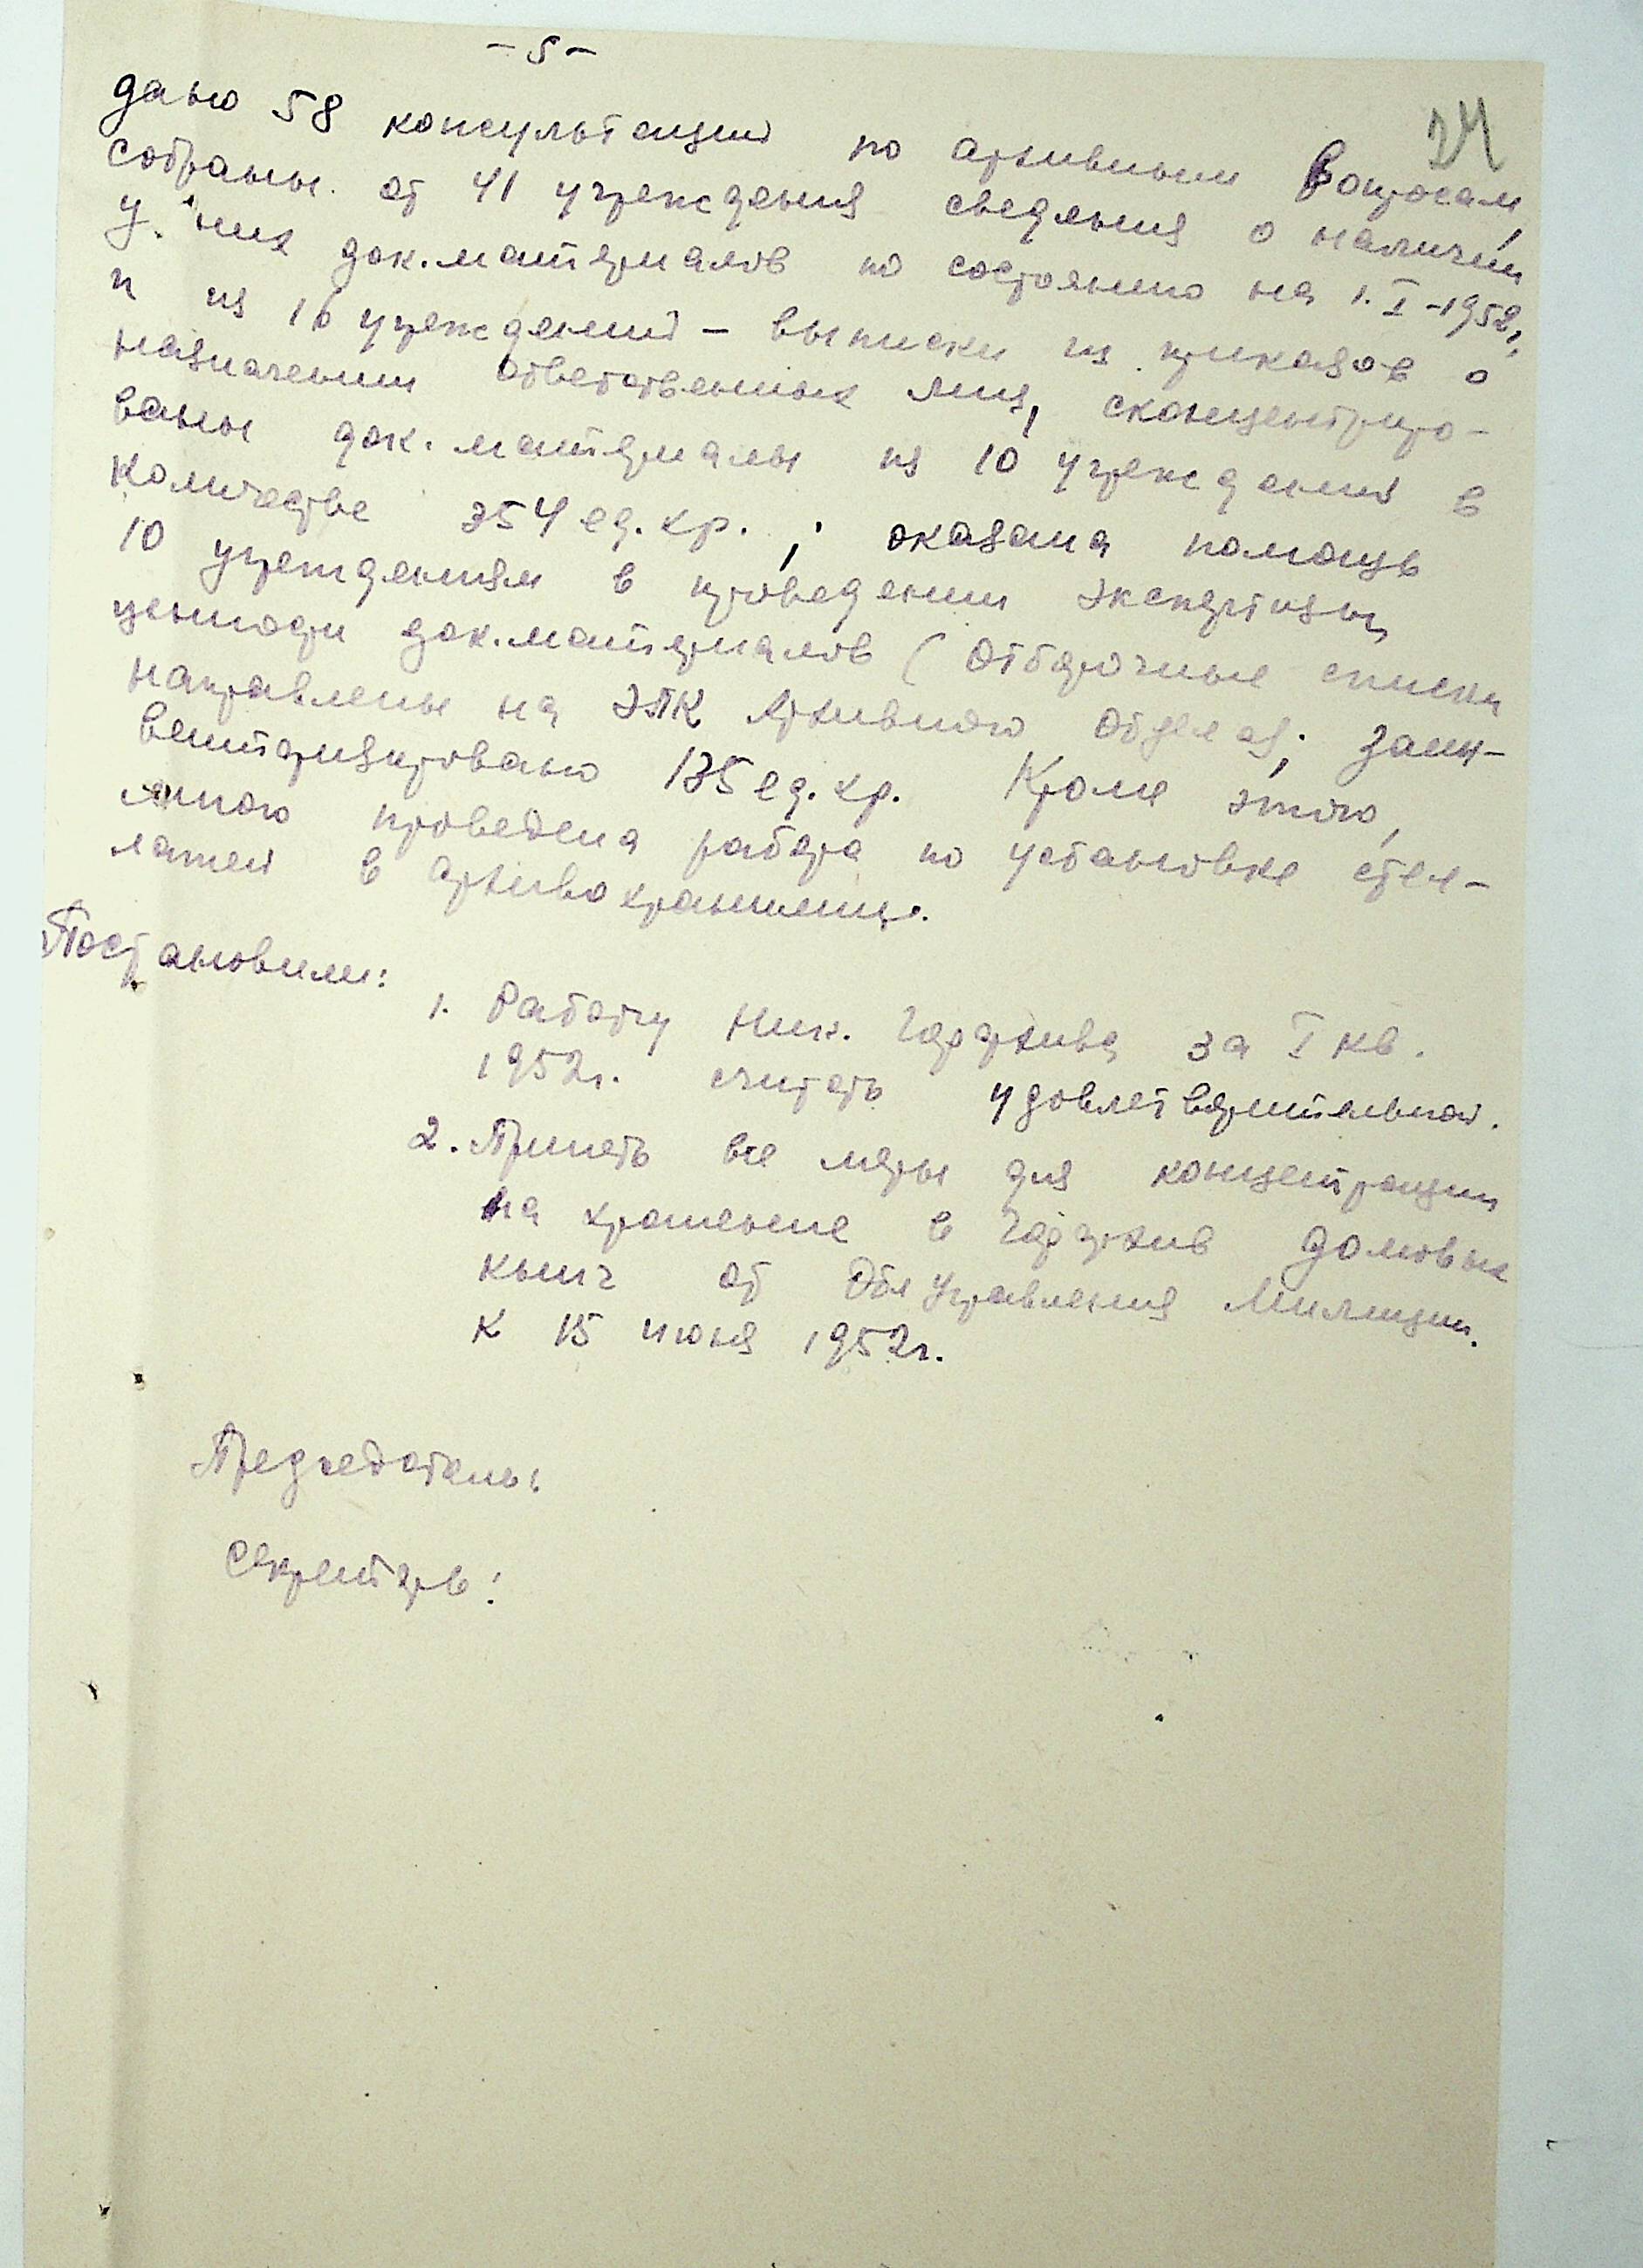 - 5 -
24
дано 58 консультаций по архивным вопросам,
собраны от 41 учреждения сведения о наличии
у них док. материалов по состоянию на 1.I-1952г.
и из 16 учреждений - выписки из приказов о
назначении ответственных лиц, сконцентриро-
ваны док. материалы из 10 учреждений в
количестве 354 ед. хр.; оказана помощь
10 учреждениям в проведении экспертизы
ценности док. материалов (отборочные списки
направлены на ЭПК Архивного отдела); заин-
вентаризировано 135 ед. хр. Кроме этого,
мною проведена работа по установке стел-
лажей в архивохранилище.
Постановили:
1. Работу Ник. Горархива за I кв.
1952г. считать удовлетворительной.
2. Принять все меры для концентрации
на хранение в Горархив домовых
книг от Обл Управления Милиции.
к 15 июня 1952г.
Председатель:
Секретарь: